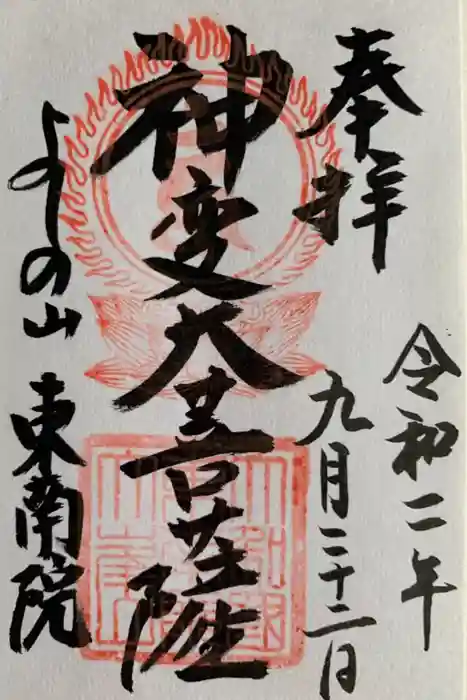 奉拝
令和二年
九月二十二日
神変大菩薩
よしの山
東南院